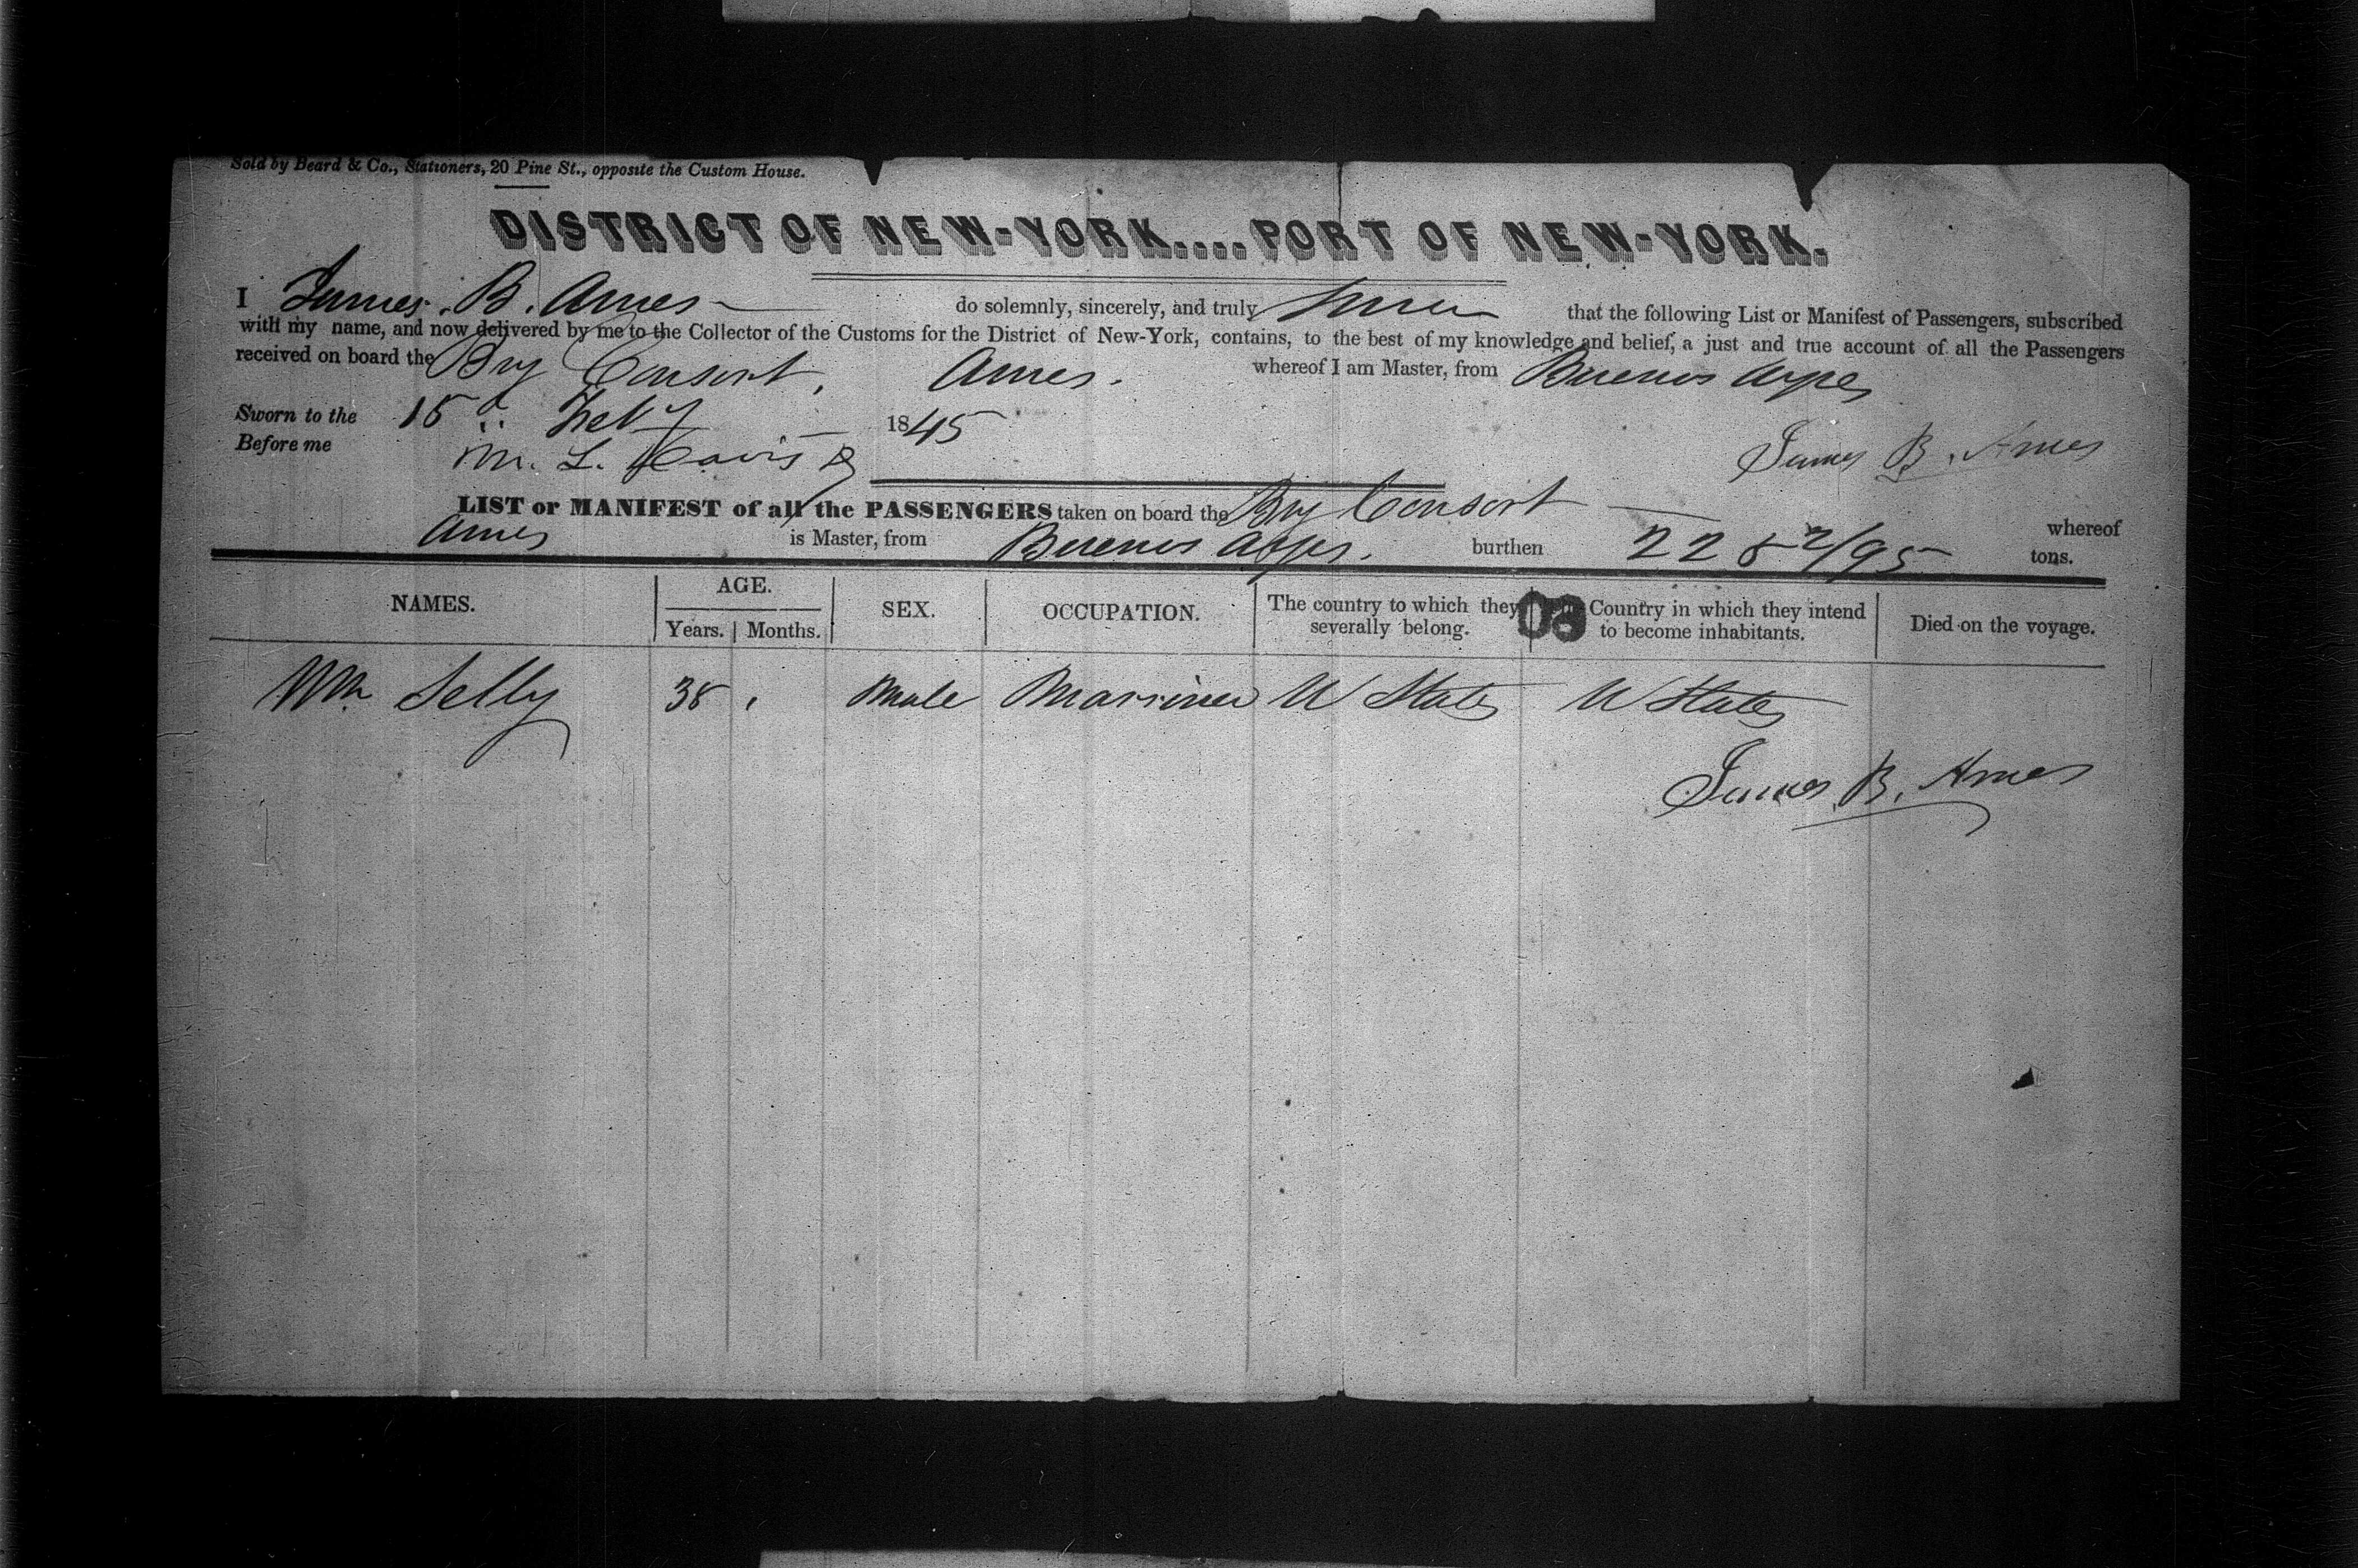 Sold by Beard & Co., Stationers, 20 Pine St., opposite the Custom House.
DISTRICT OF NEW-YORK....PORT OF NEW-YORK.
I James. B. Ames do solemnly, sincerely, and truly swear that the following List or Manifest of Passengers, subscribed
with my name, and now delivered by me to the Collector of the Customs for the District of New-York, contains, to the best of my knowledge and belief, a just and true account of all the Passengers
received on board the Brg Consort, Ames. whereof I am Master, from Buenos Ayres
Sworn to the 15 Feby 1845
Before me M. L. Davis
James B. Ames
LIST or MANIFEST of all the PASSENGERS taken on board the Brg Consort whereof
Ames is Master, from Buenos Ayres. burthen 228 2/95 tons.
NAMES. AGE. Years. Months. SEX. OCCUPATION. The country to which they severally belong. Country in which they intend to become inhabitants. Died on the voyage.
Wm Selly 38 Male Marriner U States U States
James B. Ames